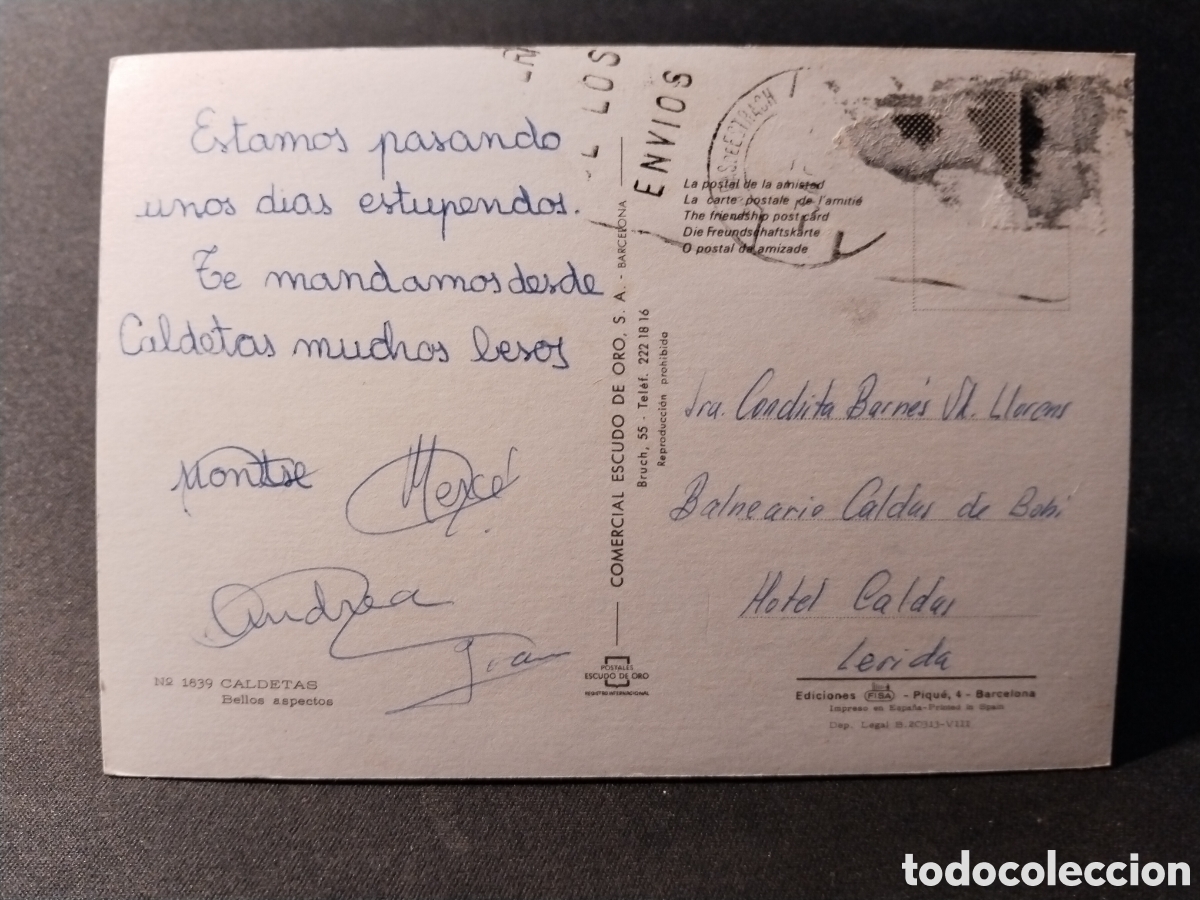 Estamos pasando
unos dias estupendos.
Te mandamos desde
Caldetas muchos besos
Montse Mercé
Andrea
Nº 1839 CALDETAS
Bellos aspectos
LOS
ENVIOS
COMERCIAL ESCUDO DE ORO, S. A. - BARCELONA
Bruch, 55 - Teléf. 222 18 16
Reproducción prohibida
POSTALES
ESCUDO DE ORO
REGISTRO INTERNACIONAL
La postal de la amistad
La carte postale de l'amitié
The friendship post card
Die Freundschaftskarte
O postal da amizade
Sra. Conchita Barnés Vd. Llorens
Balneario Caldas de Bohi
Hotel Caldas
Lerida
Ediciones FISA - Piqué, 4 - Barcelona
Impreso en España-Printed in Spain
Dep. Legal B.20313-VIII
todocoleccion